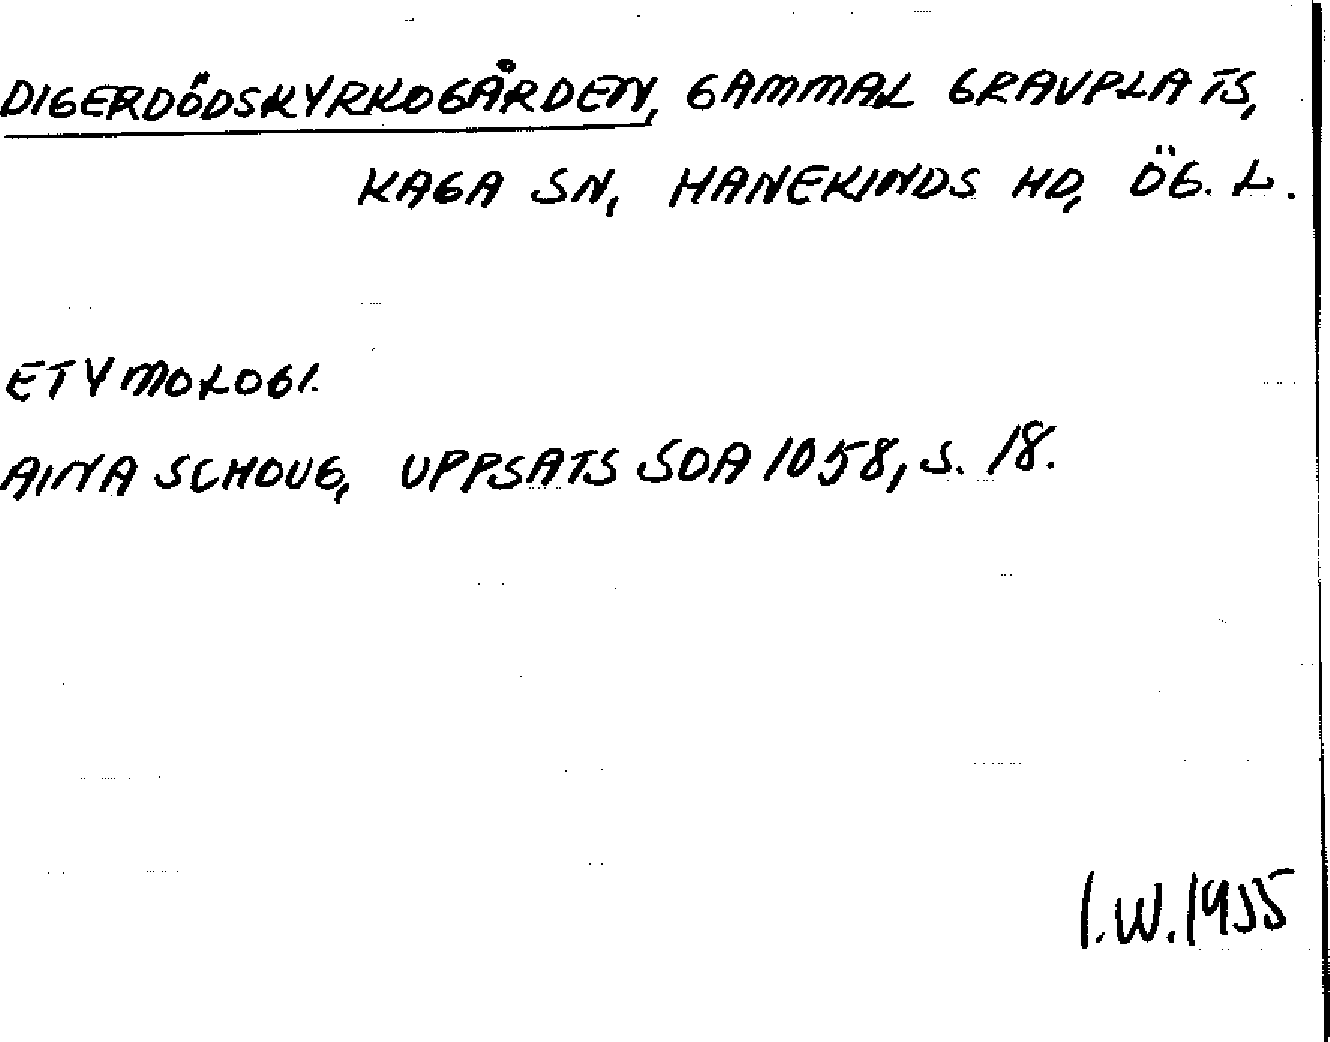 DIGERDÖDSKYRKOGÅRDEN, GAMMAL GRAVPLATS,
KAGA SN, HANEKINDS HD, ÖG. L.
ETYMOLOGI.
AINA SCHOUG, UPPSATS SOA 1058, S. 18.
I.W.1955